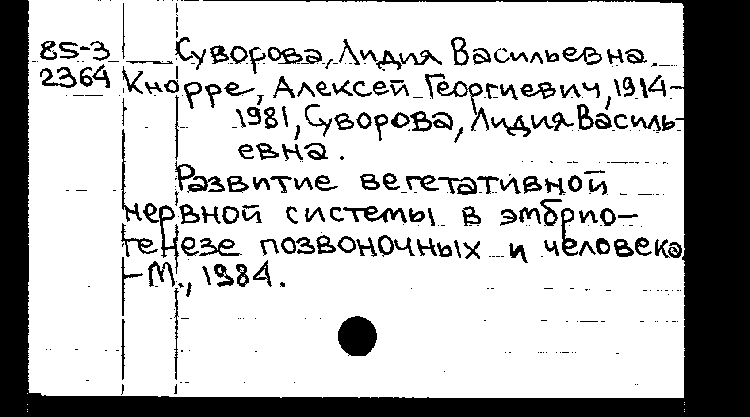 85-3 Суворова, Лидия Васильевна.
2364 Кнорре, Алексей Георгиевич, 1914-
1981, Суворова, Лидия Василь-
евна.
Развитие вегетативной
нервной системы в эмбрио-
генезе позвоночных и человека
-М., 1984.